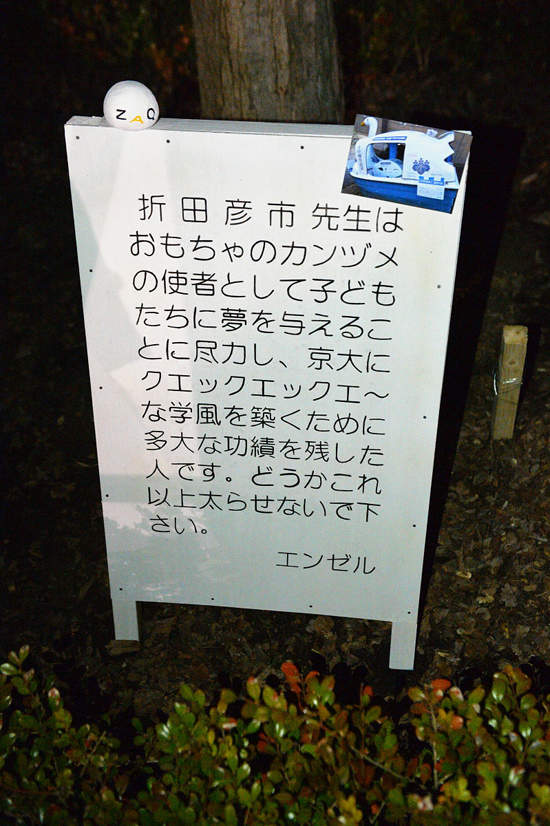 ZAQ
折田彦市先生は
おもちゃのカンヅメ
の使者として子ども
たちに夢を与えるこ
とに尽力し、京大に
クエックエックエ～
な学風を築くために
多大な功績を残した
人です。どうかこれ
以上太らせないで下
さい。
エンゼル